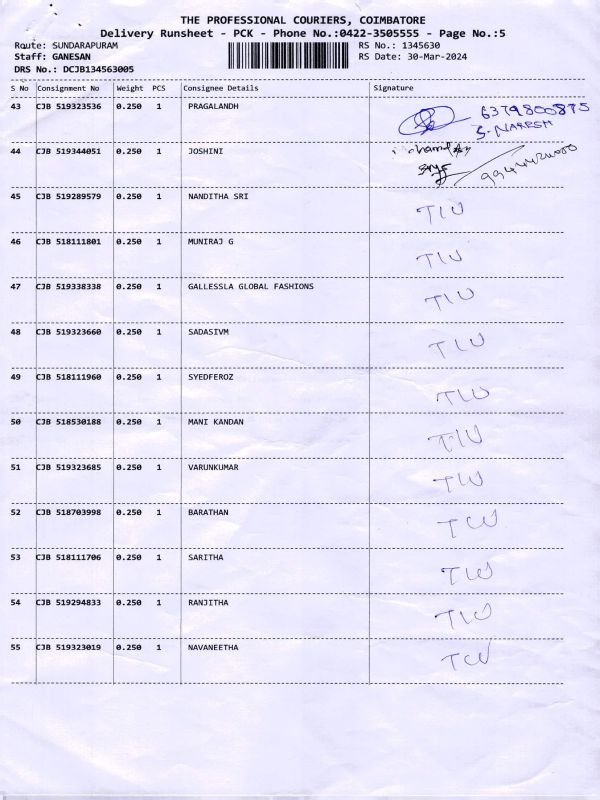 THE PROFESSIONAL COURIERS, COIMBATORE
Delivery Runsheet - PCK - Phone No.:0422-3505555 - Page No.:5
Route: SUNDARAPURAM RS No.: 1345630
Staff: GANESAN RS Date: 30-Mar-2024
DRS No.: DCJB134563005
S No Consignment No Weight PCS Consignee Details Signature
43 CJB 519323536 0.250 1 PRAGALANDH 6379800875
S. NARESH
44 CJB 519344051 0.250 1 JOSHINI
45 CJB 519289579 0.250 1 NANDITHA SRI TIU
46 CJB 518111801 0.250 1 MUNIRAJ G TIU
47 CJB 519338338 0.250 1 GALLESSLA GLOBAL FASHIONS TIU
48 CJB 519323660 0.250 1 SADASIVM TIU
49 CJB 518111960 0.250 1 SYEDFEROZ TIU
50 CJB 518530188 0.250 1 MANI KANDAN TIU
51 CJB 519323685 0.250 1 VARUNKUMAR TIU
52 CJB 518703998 0.250 1 BARATHAN TIU
53 CJB 518111706 0.250 1 SARITHA TIU
54 CJB 519294833 0.250 1 RANJITHA TIU
55 CJB 519323019 0.250 1 NAVANEETHA TIU